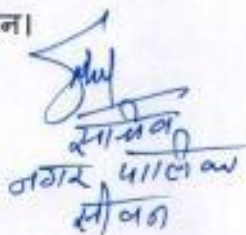 न।
सचिव
नगर पालिका
सीवन